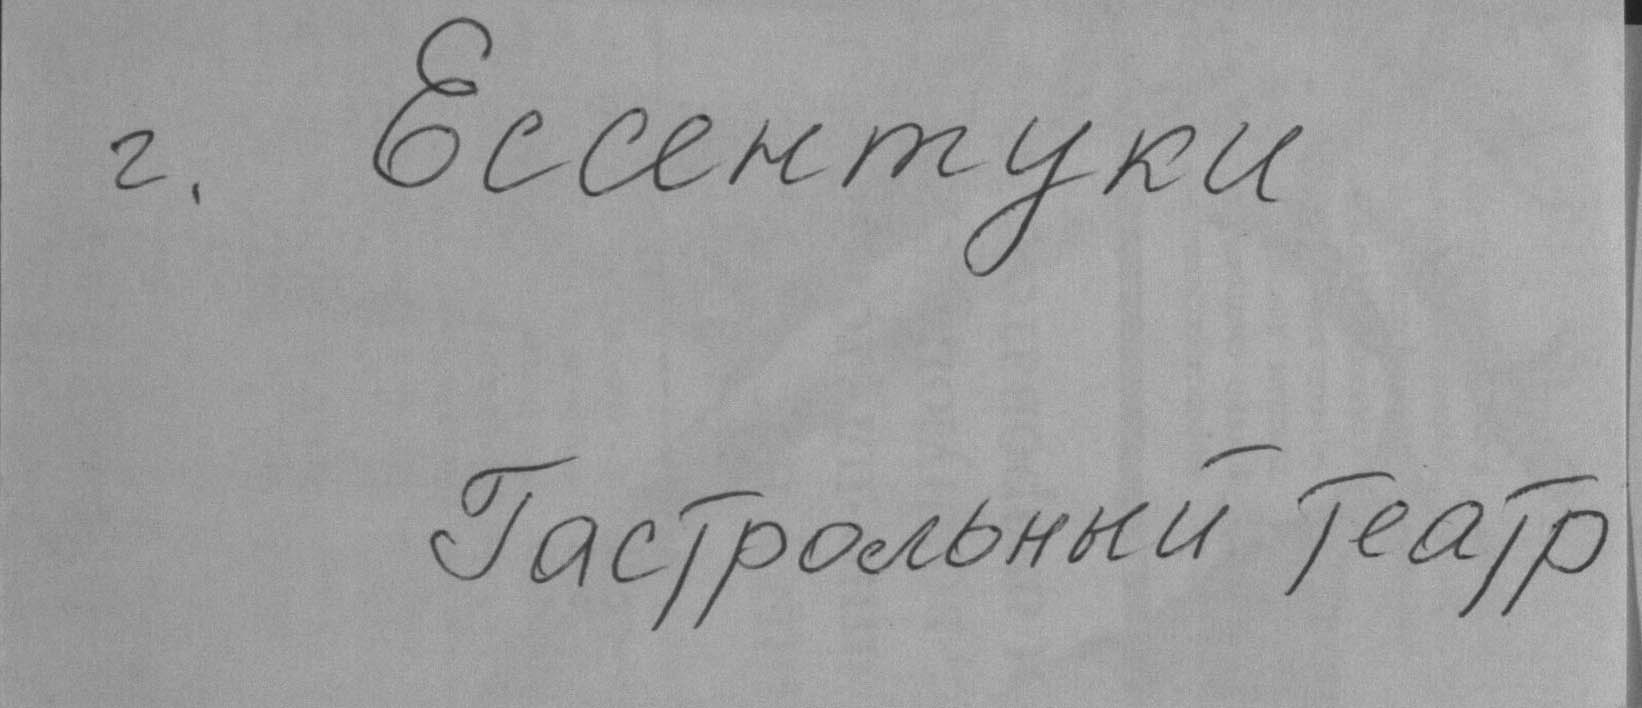 г. Ессентуки
Гастрольный театр